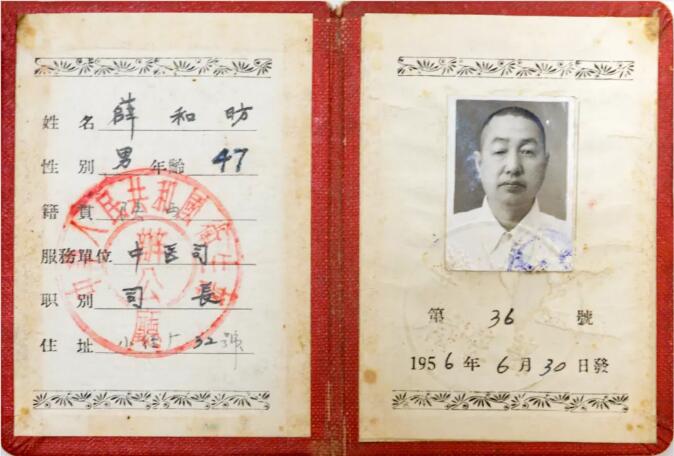 姓名 薛和昉
性別 男 年齡 47
籍貫
服務單位 中医司
职別 司長
住址 小经厂 32號
中華人民共和國衛生部
辦公廳
第 36 號
1956年6月30日發